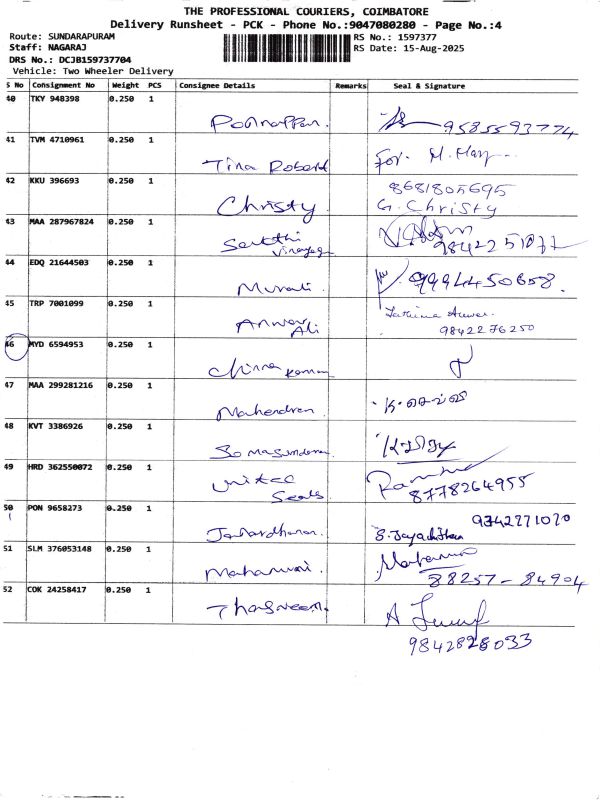 THE PROFESSIONAL COURIERS, COIMBATORE
Delivery Runsheet - PCK - Phone No.:9047080280 - Page No.:4
Route: SUNDARAPURAM RS No.: 1597377
Staff: NAGARAJ RS Date: 15-Aug-2025
DRS No.: DCJB159737704
Vehicle: Two Wheeler Delivery
S No Consignment No Weight PCS Consignee Details Remarks Seal & Signature
40 TKY 948398 0.250 1
Ponnappan. 9585593774
41 TVM 4710961 0.250 1
Tina Roberd for. M. Mary
42 KKU 396693 0.250 1
8681805695
Christy G. Christy
43 MAA 287967824 0.250 1
Sakthi
Vinayaga 9842251077
44 EDQ 21644503 0.250 1
Murali. 9994450658.
45 TRP 7001099 0.250 1
Anwar Fathima Anwar
Ali 9842276250
46 MYD 6594953 0.250 1
Chinna Kannan
47 MAA 299281216 0.250 1
Mahendran. க. செல்வி
48 KVT 3386926 0.250 1
Somasundaram
49 HRD 362550072 0.250 1
United
Seals 8778264955
50 PON 9658273 0.250 1
9342271070
Janardhanan. S. Jayachithra
51 SLM 376053148 0.250 1
Maharani.
88257-84904
52 COK 24258417 0.250 1
Thasneem.
9842828033